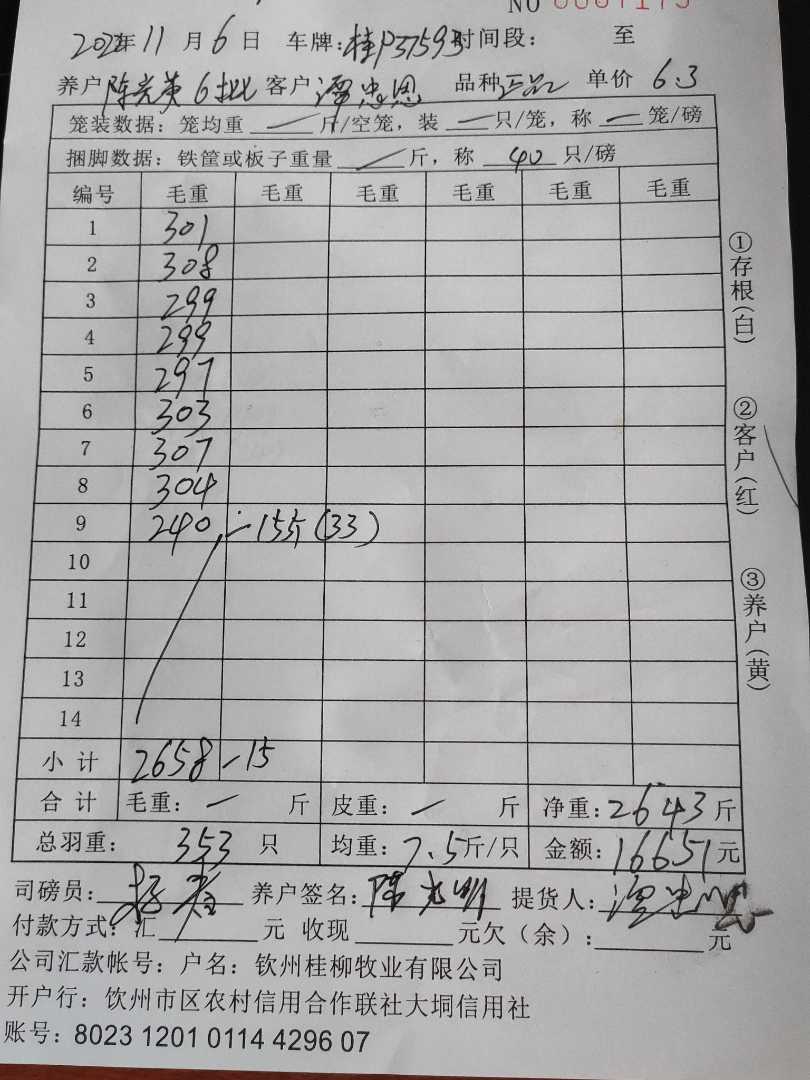 NO 0007175
2022年 11 月 6 日 车牌:桂P37593 时间段: 至
养户 陈光英 6批 客户 谭忠恩 品种 正品 单价 6.3
笼装数据: 笼均重 — 斤/空笼, 装 — 只/笼, 称 — 笼/磅
捆脚数据: 铁筐或板子重量 — 斤, 称 40 只/磅
编号 毛重 毛重 毛重 毛重 毛重 毛重
1 301
2 308
3 299
4 299
5 297
6 303
7 307
8 304
9 240 — 15斤 (33)
10
11
12
13
14
小 计 2658 -15
合 计 毛重: — 斤 皮重: — 斤 净重: 2643 斤
总羽重: 353 只 均重: 7.5 斤/只 金额: 16651 元
司磅员: 养户签名: 陈光明 提货人: 谭忠恩
付款方式: 汇 元 收现 元欠(余): 元
公司汇款帐号: 户名: 钦州桂柳牧业有限公司
开户行: 饮州市区农村信用合作联社大垌信用社
账号: 8023 1201 0114 4296 07
①存根(白)
②客户(红)
③养户(黄)